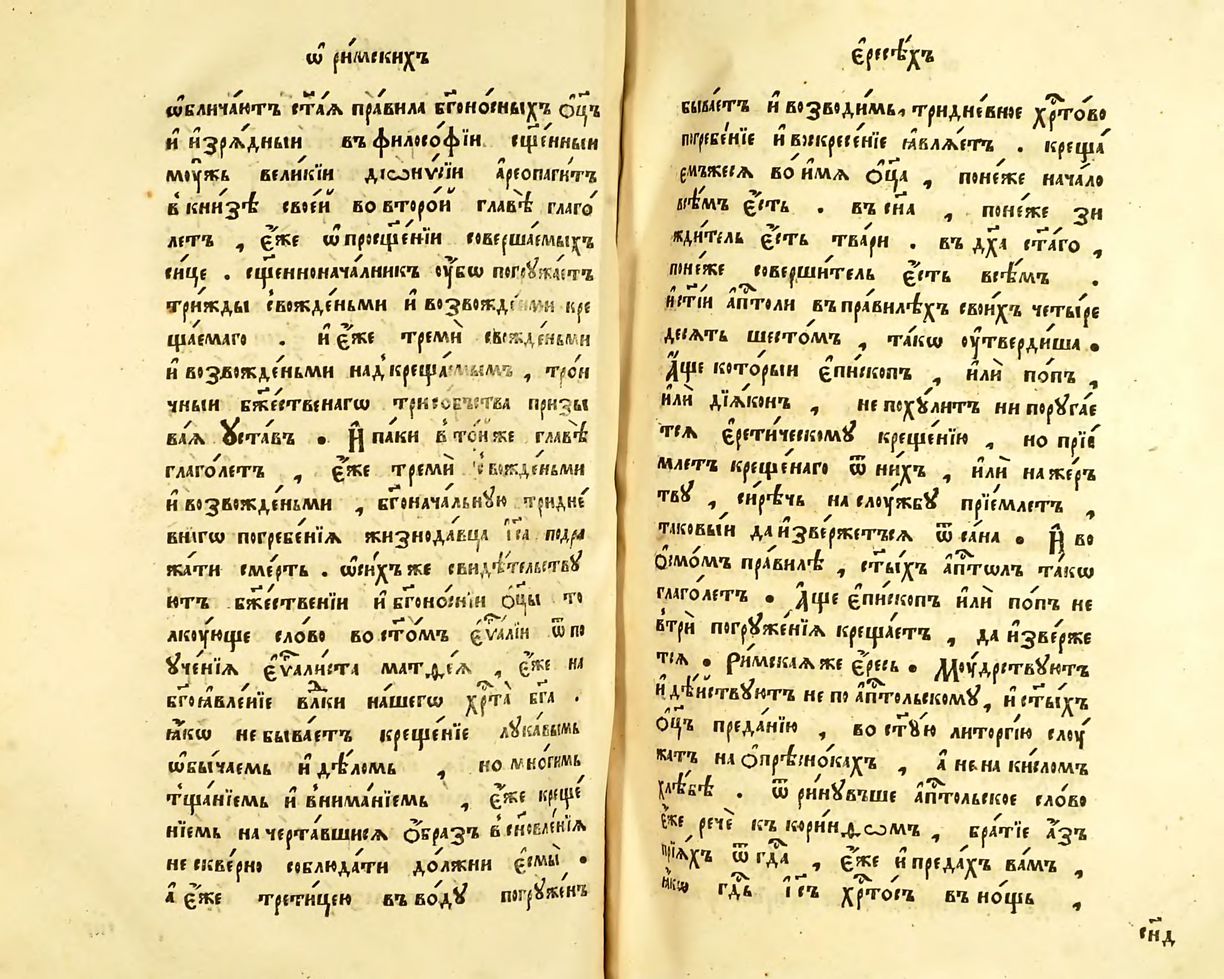 ѡ҆ ри́мскихъ
ѡ҆бличаю́тъ ст҃а́ѧ пра́вила бг҃оно́сныхъ ѻ҆ц҃ъ
и҆ и҆зрѧ́дныи въ филосо́фїи сщ҃е́нныи
моу́жь вели́кїи дїѡни́сїи а҆реопаги́тъ
в кни́зѣ свое́й во второ́й главѣ̀ глаго́
летъ , є҆́же ѡ҆ просщ҃е́нїи соверша́емыхъ
си́це . сщ҃енноначалникъ ᲂу҆́бѡ погружа́етъ
три́жды свожде́ньми и҆ возвожде́ньми кре
ща́емаго . и҆ є҆́же тремѝ свожде́ньми
и҆ возвожде́ньми над креща́емымъ , трои
чныи бж҃е́ственагѡ трисо́бства призы
ва́ѧ ᲂу҆ста́въ . И҆ па́ки в то́йже главѣ̀
глаго́летъ , є҆́же тремѝ свожде́ньми
и҆ возвожде́ньми , бг҃онача́льную тридне́
внагѡ погребе́нїѧ жизнода́вца і҆с҃а подра
жа́ти сме́рть . ѡ҆си́хъ же свидѣ́тельству
ютъ бж҃е́ственїи и҆ бг҃оно́снїи ѻ҆ц҃ы то
лкоу́юще сло́во во ст҃о́мъ є҆ѵ҃а́лїи ѿ по
уче́нїѧ є҆ѵ҃али́ста матѳе́ѧ , є҆́же на
бг҃оѧвле́нїе влⷣки на́шегѡ хрⷭ҇та̀ бг҃а .
ꙗ҆́кѡ не быва́етъ креще́нїе лука́вымъ
ѡ҆бы́чаемь и҆ дѣ́ломь , но мно́гимь
тща́нїемь и҆ внима́нїемь , є҆́же креще́
нїемь на черта́вшиисѧ ѻ҆́бразъ в сн҃овле́нїѧ
не скве́рно соблюда́ти до́лжни є҆смы̀ .
а҆ є҆́же трети́цею въ во́ду погруже́нъ
є҆́ресѣхъ
быва́етъ и҆ возводи́мь, тридне́вное хрⷭ҇то́во
погребе́нїе и҆ въскресе́нїе ꙗ҆влѧ́етъ . креща́
емъжесѧ во и҆́мѧ ѻ҆ц҃а , поне́же нача́ло
всѣ́мъ є҆́сть . въ сн҃а , поне́же зи
жди́тель є҆́сть тва́ри . въ дх҃а ст҃а́го ,
поне́же соверши́тель є҆́сть всѣ́мъ .
и҆ ст҃і́и а҆пⷭ҇толи въ пра́вилѣхъ свои́хъ четы́ре
десѧтъ шесто́мъ , та́кѡ ᲂу҆тверди́ша .
А҆́ще кото́рыи є҆пи́скопъ , и҆лѝ по́пъ ,
и҆лѝ дїѧ́конъ , не поху́литъ ни поруга́е
тсѧ є҆рети́ческому креще́нїю , но прїе́
млетъ креще́наго ѿ ни́хъ , и҆лѝ на же́ръ
тву , си́рѣчь на слоу́жбу прїе́млетъ ,
таковы́й да и҆зве́ржетъсѧ ѿ са́на . И҆ во
ѻ҆смо́мъ пра́вилѣ , ст҃ы́хъ а҆пⷭ҇толъ та́кѡ
глаго́летъ . А҆́ще є҆пи́скопъ и҆лѝ по́пъ не
втрѝ погруже́нїѧ креща́етъ , да и҆зве́рже
тсѧ . Ри́мскаѧ же є҆́ресь . Моу́дрствуютъ
и҆ дѣ́йствуютъ не по а҆пⷭ҇тольскому, и҆ ст҃ы́хъ
ѻ҆ц҃ъ преда́нїю , во ст҃у́ю литоргі́ю слоу́
жатъ на ѻ҆прѣсно́кахъ , а҆ не на ки́сломъ
хлѣ́бѣ . ѿ рину́въше а҆пⷭ҇тольское сло́во
є҆́же речѐ къ кори́нѳѡмъ , бра́тїе а҆́зъ
прїѧ́хъ ѿ гдⷭ҇а , є҆́же и҆ преда́хъ ва́мъ ,
ꙗ҆́кѡ гдⷭ҇ь і҆с҃ъ хрⷭ҇то́съ въ но́щь ,